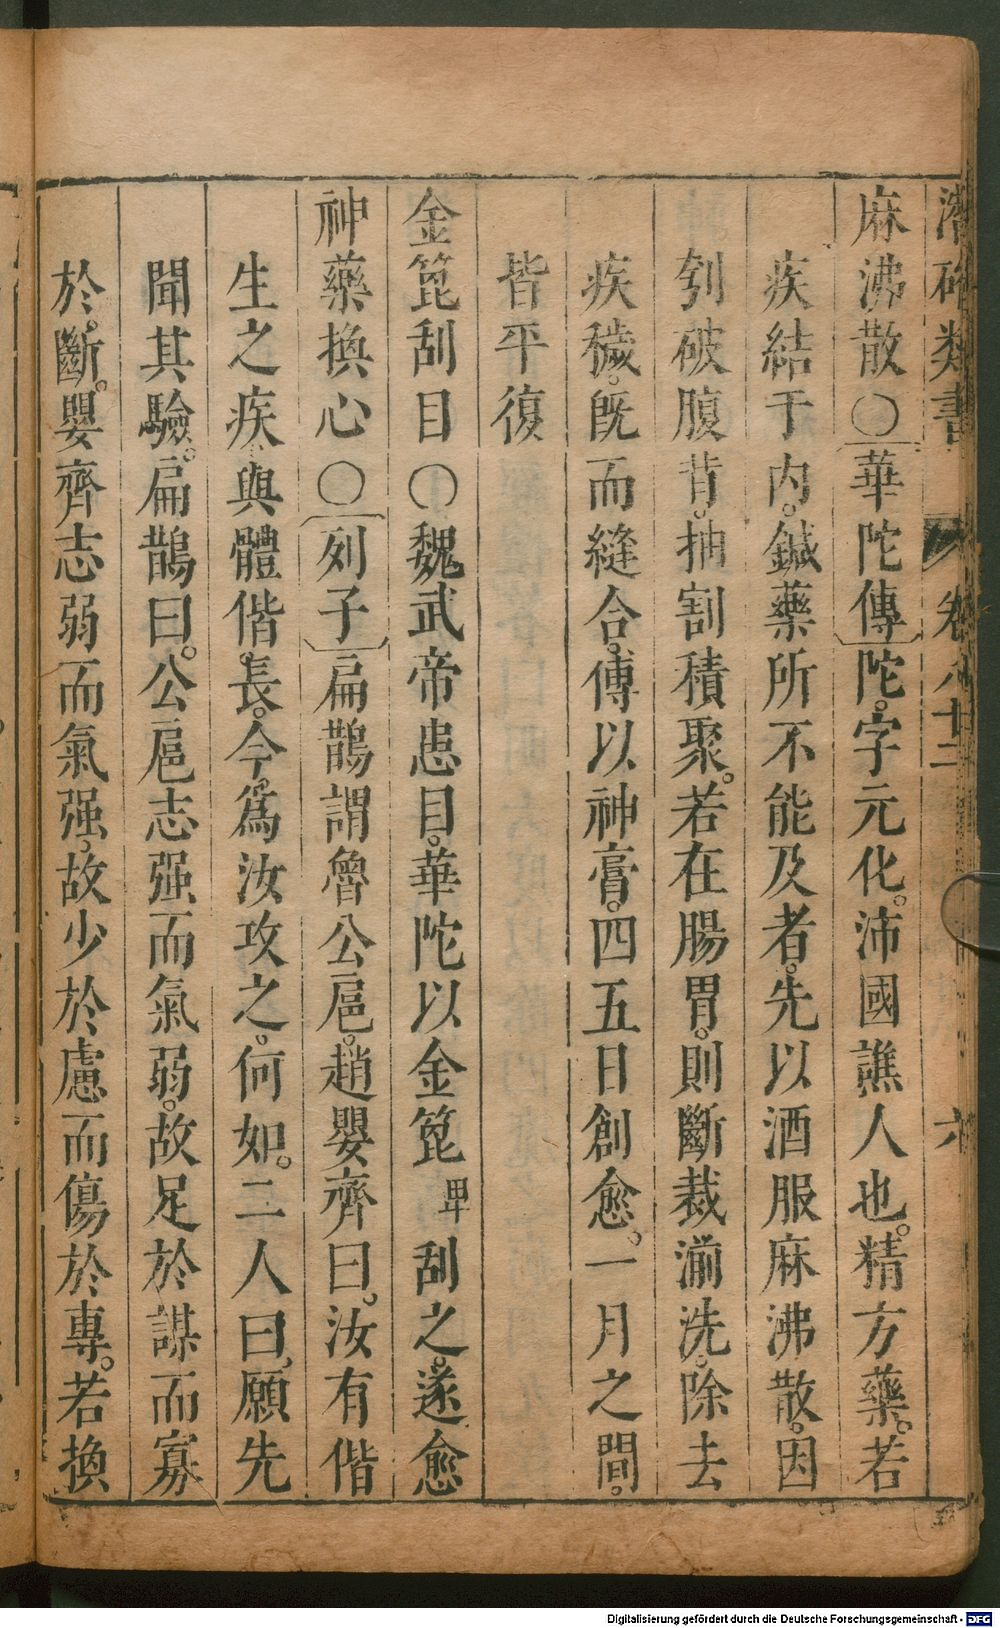 潛確類書 卷八十二 六
麻沸散〇華陀傳陀。字元化。沛國譙人也。精方藥。若
疾結于内。鍼藥所不能及者。先以酒服麻沸散。因
刳破腹背。抽割積聚。若在腸胃。則斷裁湔洗。除去
疾穢。既而縫合。傅以神膏。四五日創愈。一月之間。
皆平復
金篦刮目〇魏武帝患目。華陀以金篦刮之。遂愈
神藥換心〇列子扁鵲謂魯公扈。趙嬰齊曰。汝有偕
生之疾。與體偕長。今。爲汝攻之。何如。二人曰。願先
聞其驗。扁鵲曰。公扈志强而氣弱。故足於謀而寡
於斷。嬰齊志弱而氣强。故少於慮而傷於專。若換
Digitalisierung gefördert durch die Deutsche Forschungsgemeinschaft - DFG